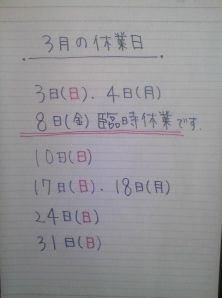 3月の休業日
3日(日)、4日(月)
8日(金)臨時休業です.
10日(日)
17日(日)、18日(月)
24日(日)
31日(日)